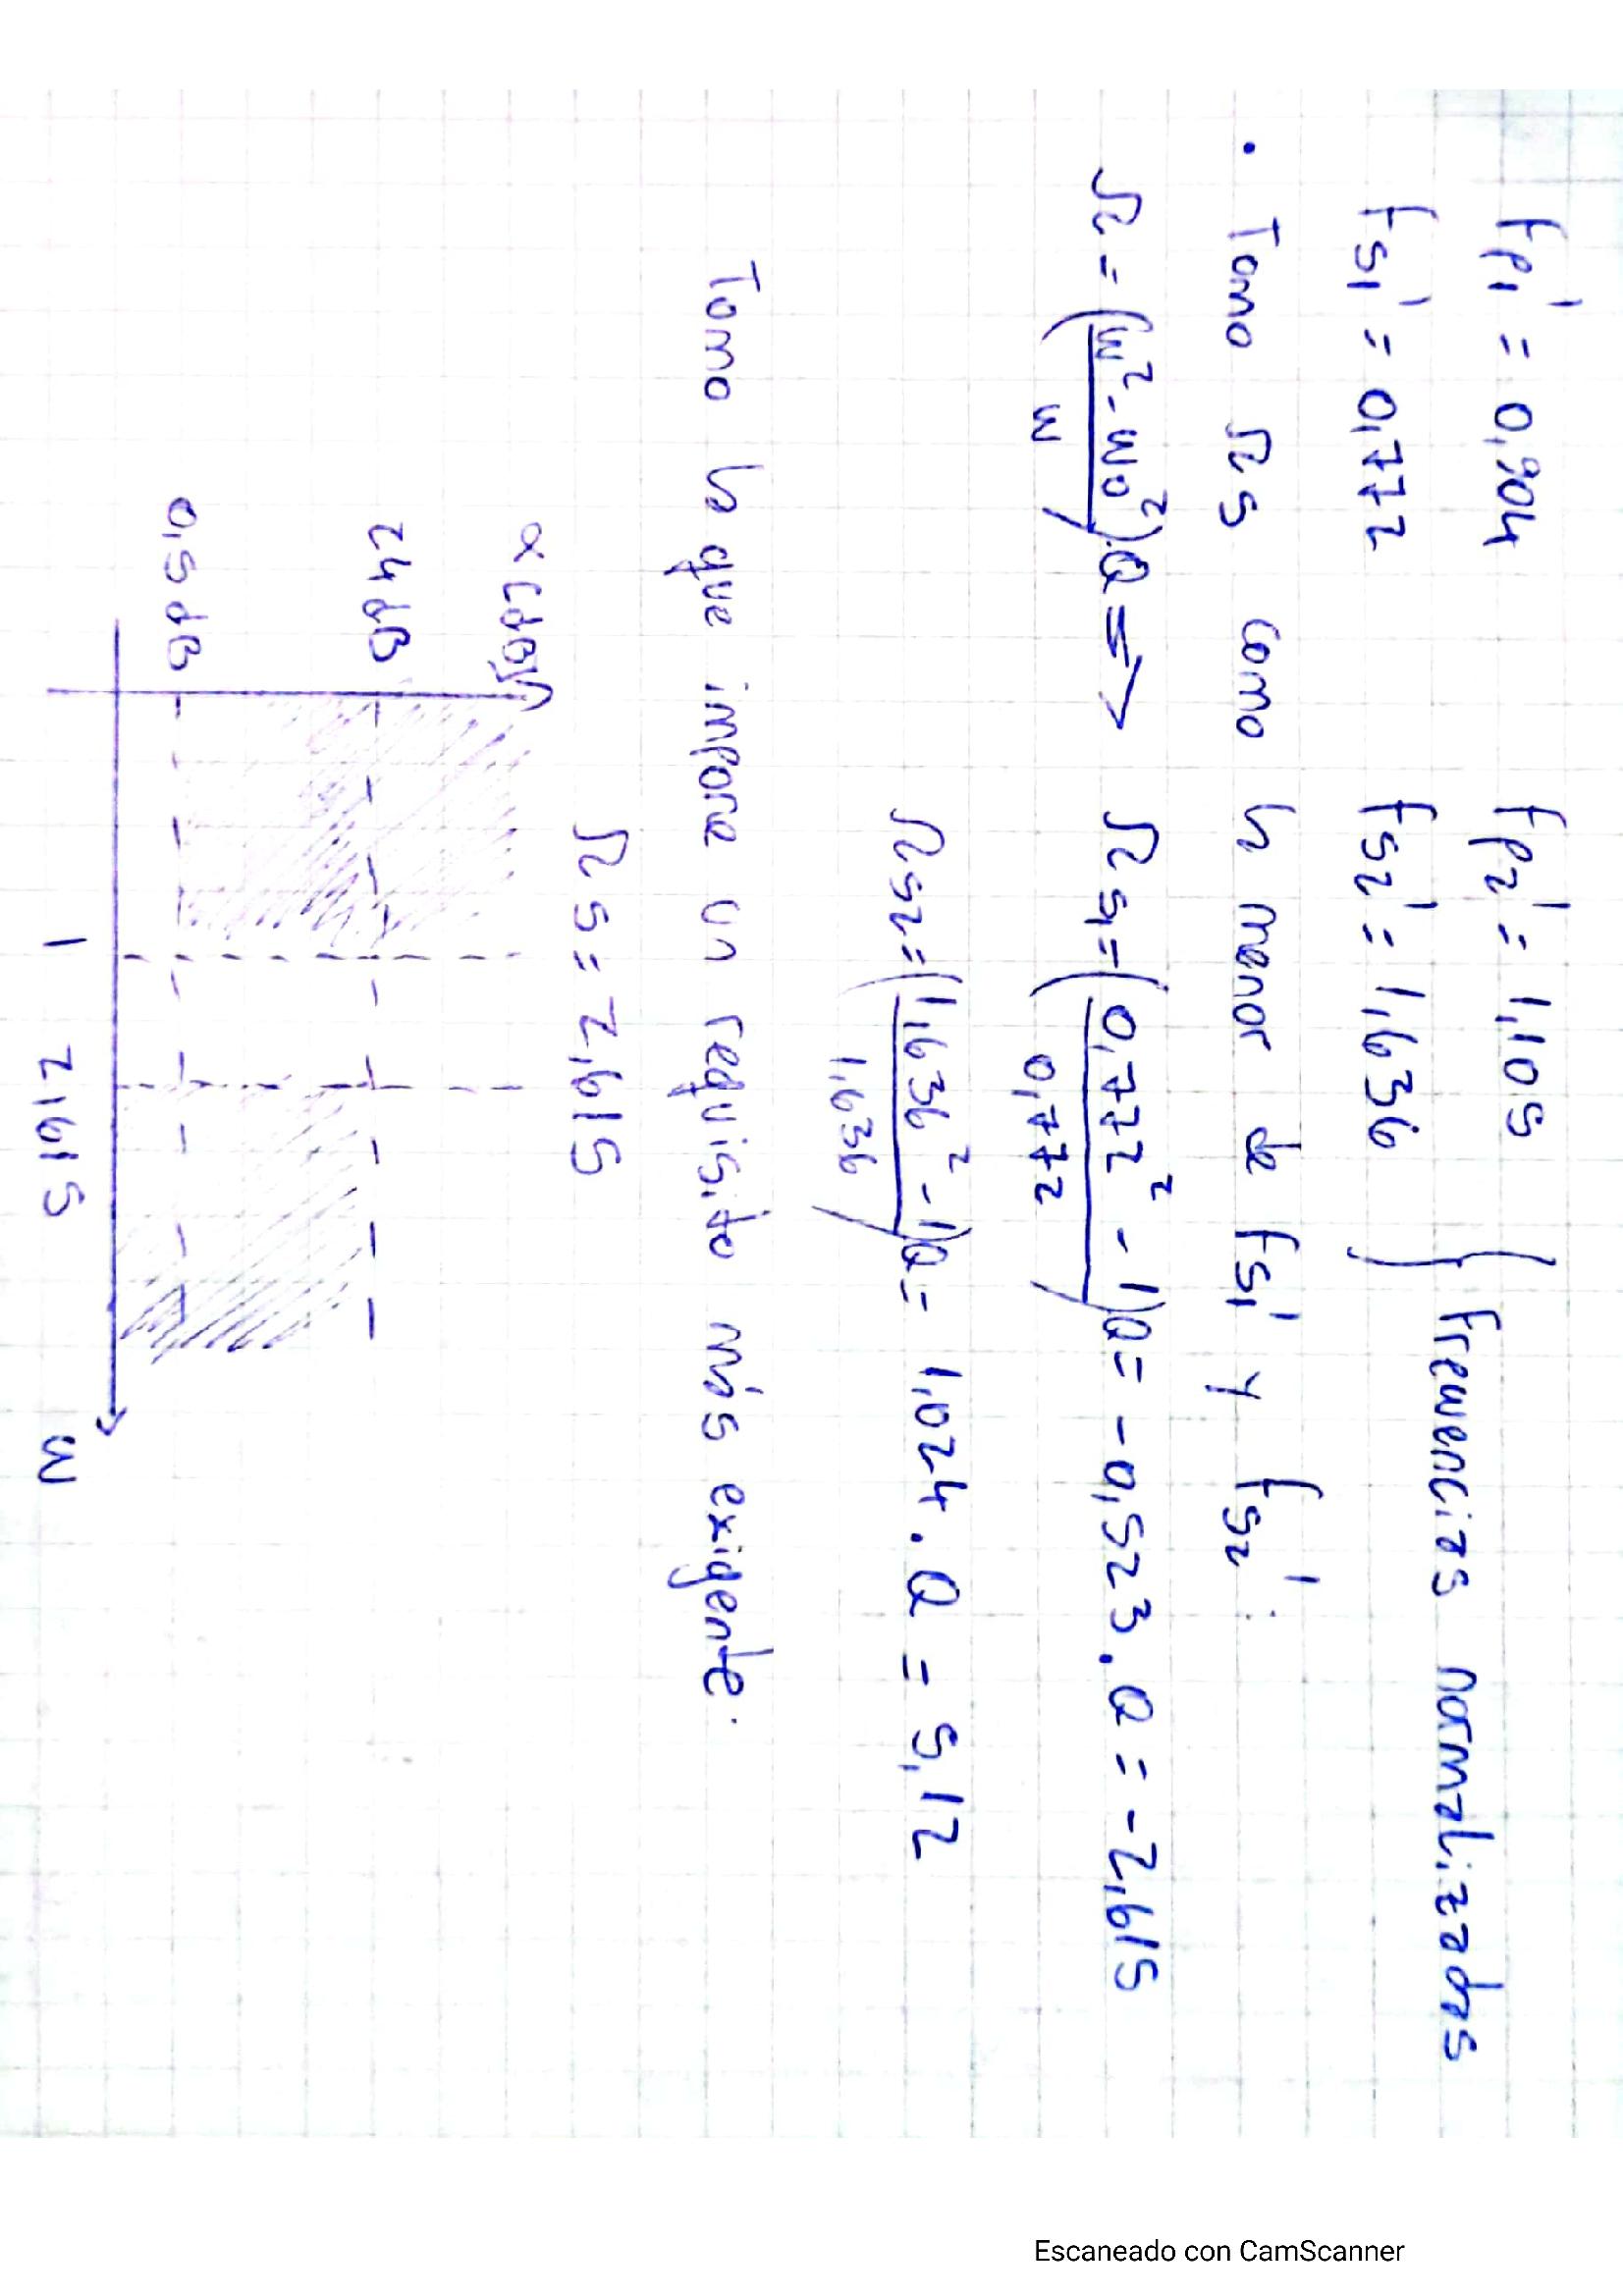 fp1' = 0,904 fp2' = 1,105
fs1' = 0,772 fs2' = 1,636 } Frecuencias normalizadas
• Tomo Ωs como la menor de fs1' y fs2':
Ω = ((w² - w0²)/w).Q => Ωs1 = ((0,772² - 1)/0,772)Q = -0,523 . Q = -2,615
Ωs2 = ((1,636² - 1)/1,636)Q = 1,024 . Q = 5,12
Tomo la que impone un requisito más exigente.
Ωs = 2,615
α[dB]
24dB
0,5dB
1 2,615 w
Escaneado con CamScanner